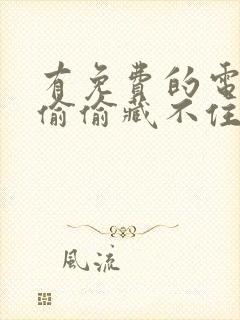 有免費的電
偷偷藏不住
風流